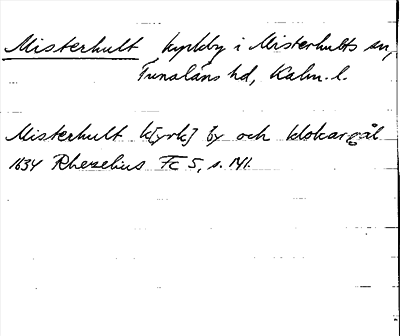 Misterhult kyrkby i Misterhults sn,
Tunaläns hd, Kalm. l.
Misterhult k[yrk] by och klokargål
1634 Rhezelius Fc 5, s. 141.